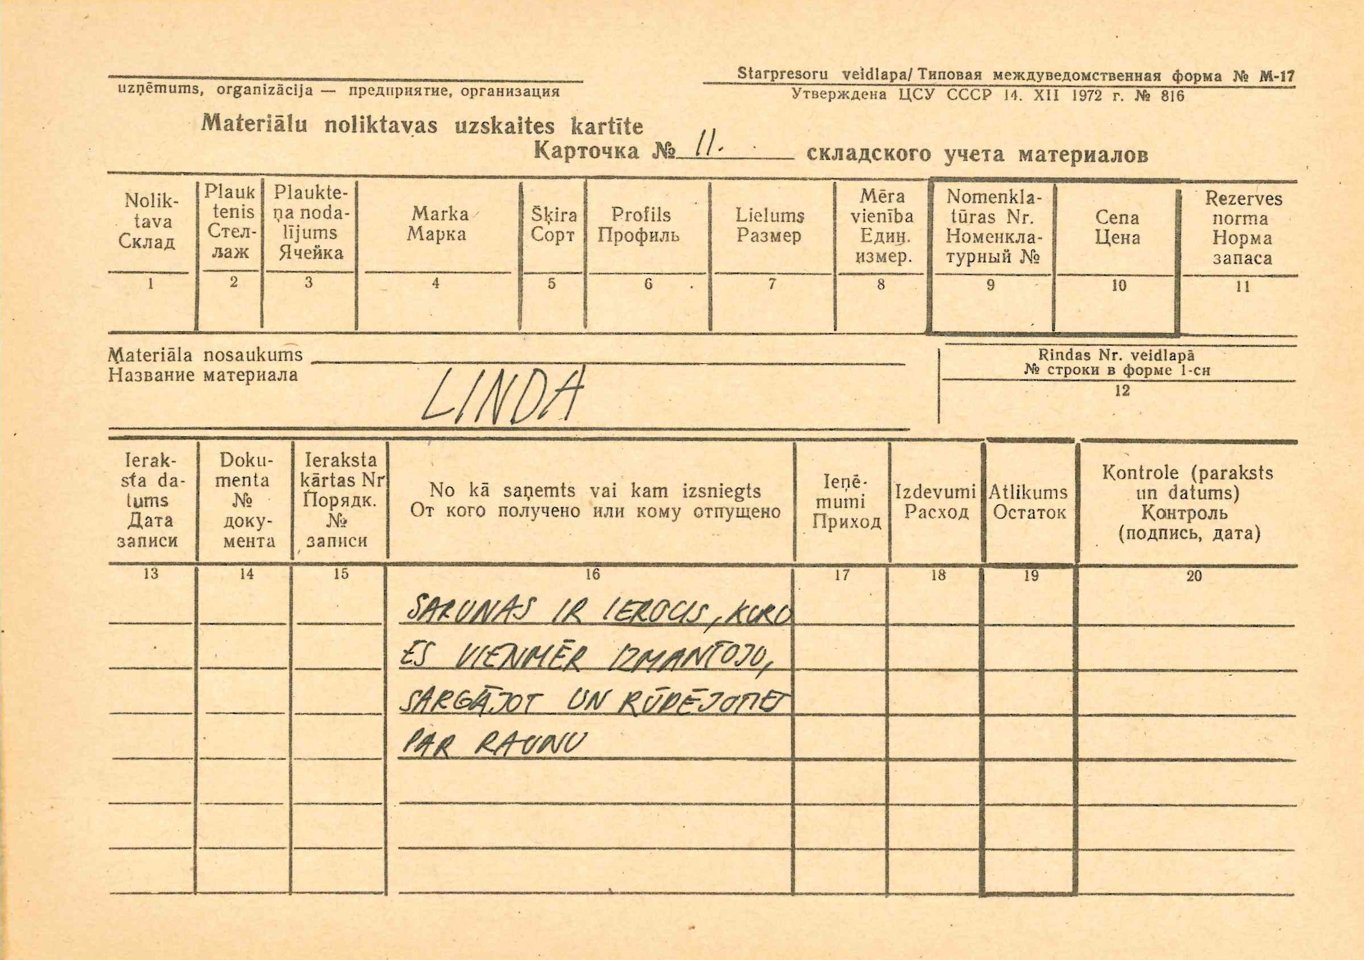 Starpresoru veidlapa/ Типовая междуведомственная форма № М-17
uzņēmums, organizācija — предприятие, организация
Утверждена ЦСУ СССР 14. XII 1972 г. № 816
Materiālu noliktavas uzskaites kartīte
Карточка № 11. складского учета материалов
Nolik-
tava
Склад
Plauk
tenis
Стел-
лаж
Plaukte-
ņa noda-
lījums
Ячейка
Marka
Марка
Šķira
Сорт
Profils
Профиль
Lielums
Размер
Mēra
vienība
Един.
измер.
Nomenkla-
tūras Nr.
Номенкла-
турный №
Cena
Цена
Rezerves
norma
Норма
запаса
1 2 3 4 5 6 7 8 9 10 11
Materiāla nosaukums
Название материала
LINDA
Rindas Nr. veidlapā
№ строки в форме 1-сн
12
Ierak-
sta da-
tums
Дата
записи
Doku-
menta
№
доку-
мента
Ieraksta
kārtas Nr
Порядк.
№
записи
No kā saņemts vai kam izsniegts
От кого получено или кому отпущено
Ieņē-
mumi
Приход
Izdevumi
Расход
Atlikums
Остаток
Kontrole (paraksts
un datums)
Контроль
(подпись, дата)
13 14 15 16 17 18 19 20
SARUNAS IR IEROCIS, KURO
ES VIENMĒR IZMANTOJU,
SARGĀJOT UN RŪPĒJOTIES
PAR RAUNU